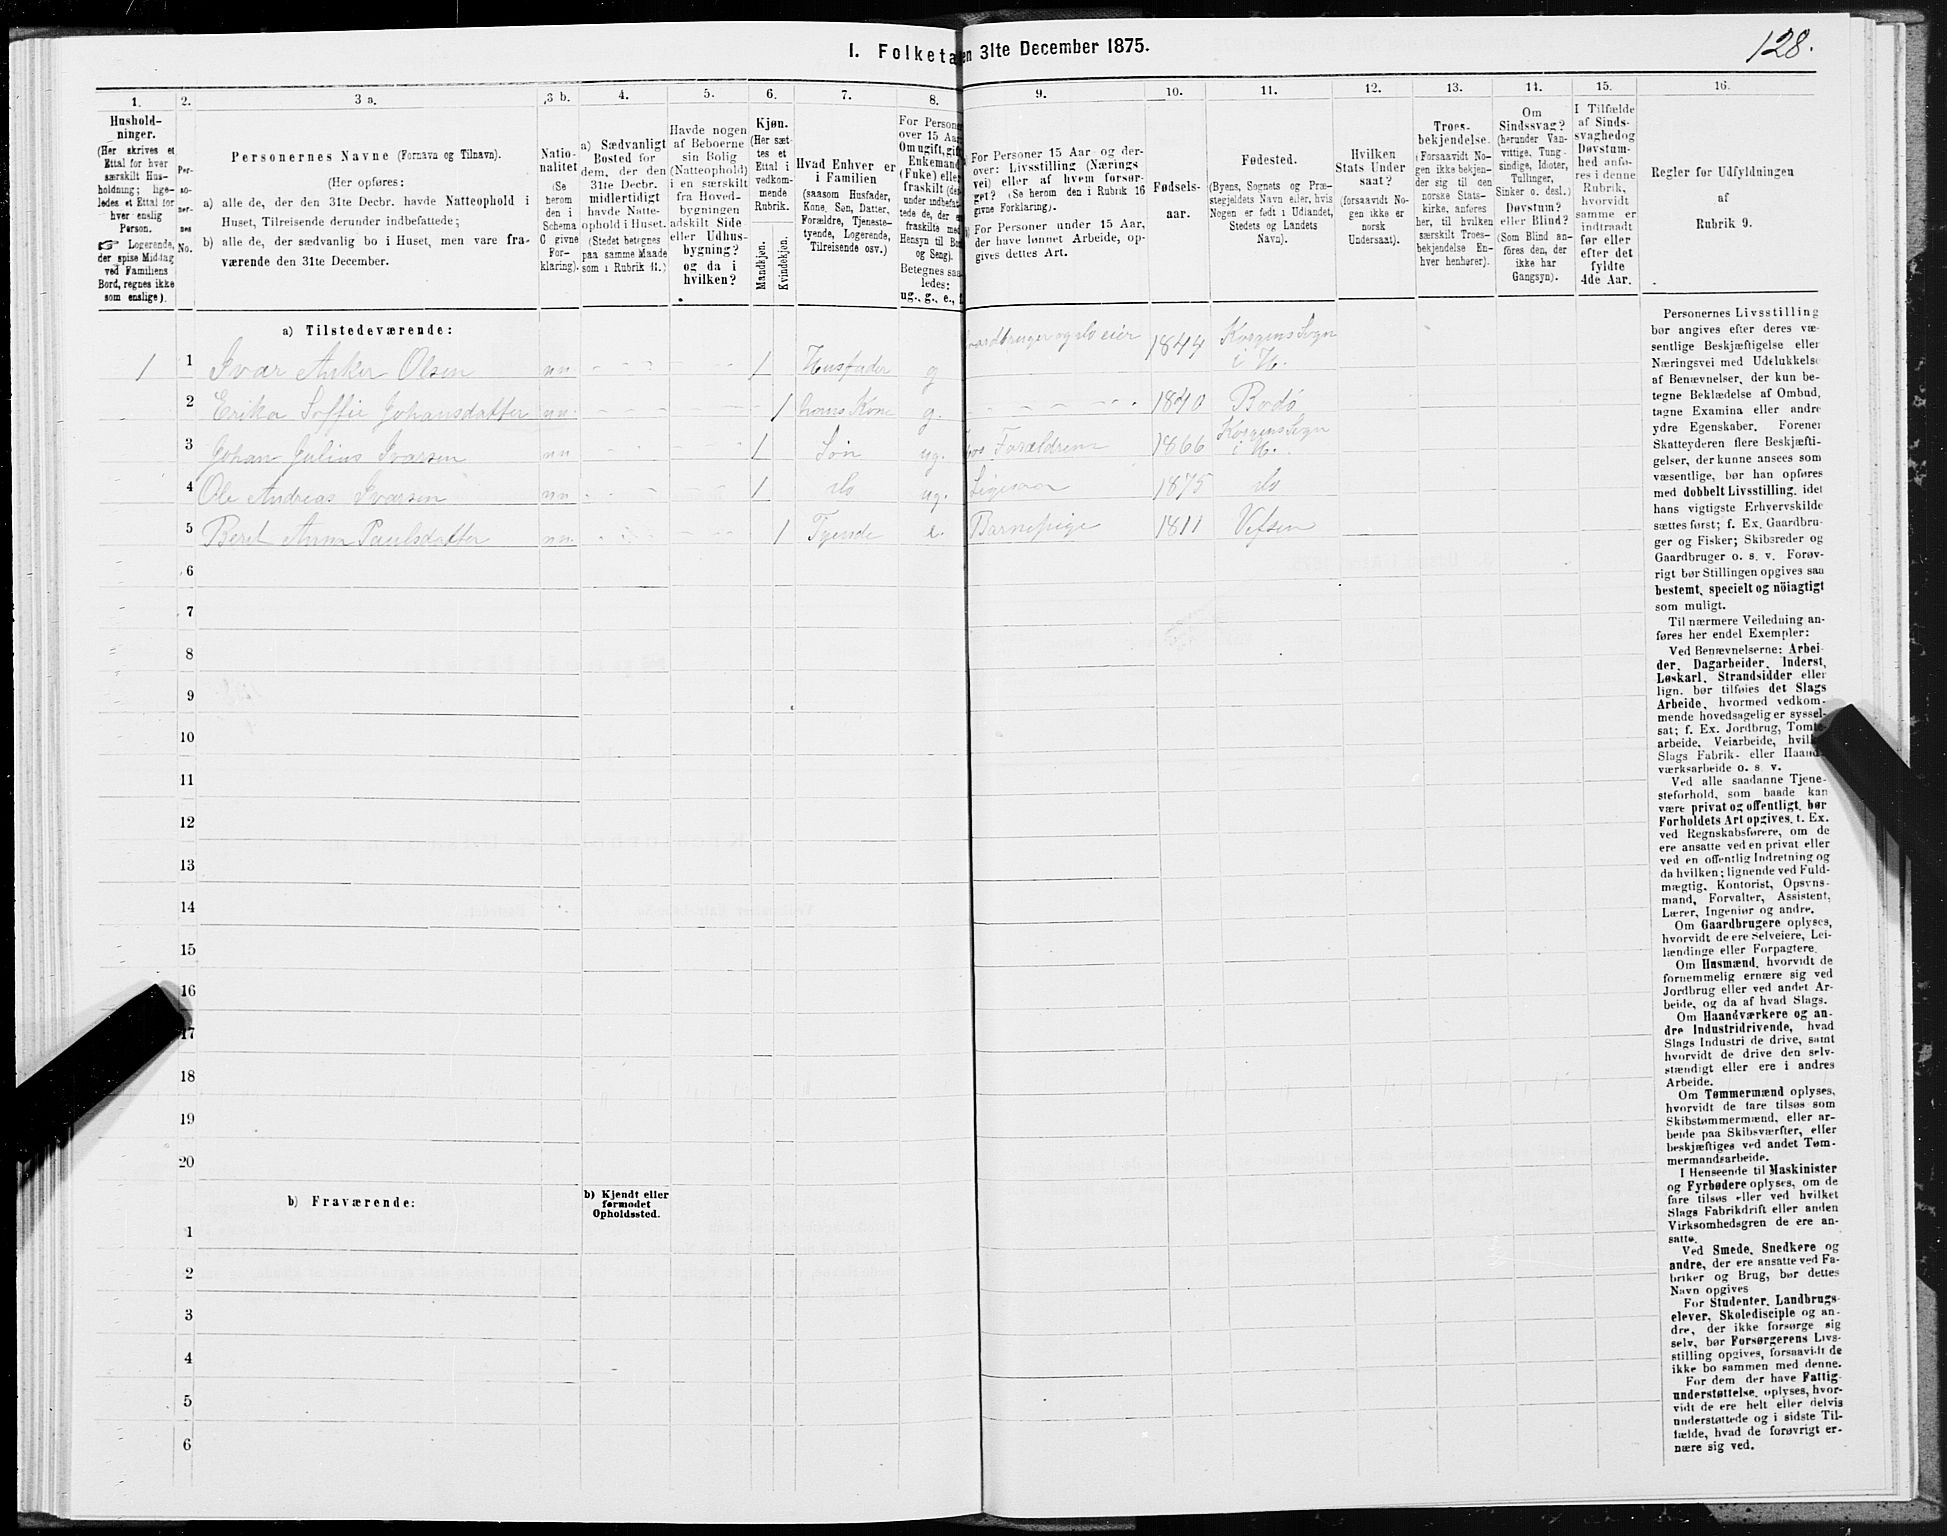 I. Folketæ
en 31te December 1875.
128.
1.
2.
3 a.
3 b.
4.
5.
6.
7.
8.
9.
10.
11.
12.
13.
14.
15.
16.
Hushold-
ninger.
(Her skrives et
Ettal for hver
særskilt Hus-
holdning; lige-
ledes et Ettal for
hver enslig
Person.
☞ Logerende,
der spise Middag
ved Familiens
Bord, regnes ikke
som enslige).
Per-
so-
ner-
nes
No.
Personernes Navne (Fornavn og Tilnavn).
(Her opføres:
a) alle de, der den 31te Decbr. havde Natteophold i
Huset, Tilreisende derunder indbefattede;
b) alle de, der sædvanlig bo i Huset, men vare fra-
værende den 31te December.
Natio-
nalitet
(Se
herom
den i
Schema
C givne
For-
klaring).
a) Sædvanligt
Bosted for
dem, der den
31te Decbr.
midlertidigt
havde Natte-
ophold i Huset.
(Stedet betegnes
paa samme Maade
som i Rubrik 11.)
Havde nogen
af Beboerne
sin Bolig
(Natteophold)
i en særskilt
fra Hoved-
bygningen
adskilt Side
eller Udhus-
bygning?
og da i
hvilken?
Kjøn.
(Her sæt-
tes et
Ettal i
vedkom-
mende
Rubrik.
Mandkjøn.
Kvindekjøn.
Hvad Enhver er
i Familien
(saasom Husfader,
Kone, Søn, Datter,
Forældre, Tjeneste-
tyende, Logerende,
Tilreisende osv.)
For Persone
over 15 Aar
Om ugift, gift
Enkemand
(Enke) elle
fraskilt (de
under indbefat-
tede de, der e
fraskilte med
Hensyn til Bo
og Seng).
Betegnes saa
ledes:
ug., g., e., f
For Personer 15 Aar og der-
over: Livsstilling (Nærings
vei) eller af hvem forsør-
get? (Se herom den i Rubrik 16
givne Forklaring).
For Personer under 15 Aar,
der have lønnet Arbeide, op-
gives dettes Art.
Fødsels-
aar.
Fødested.
(Byens, Sognets og Præ-
stegjeldets Navn eller, hvis
Nogen er født i Udlandet,
Stedets og Landets
Navn).
Hvilken
Stats Under
saat?
(forsaavidt No-
gen ikke er
norsk
Undersaat).
Troes-
bekjendelse.
(Forsaavidt No-
gen ikke bekjen-
der sig til den
norske Stats-
kirke, anføres
her, til hvilken
særskilt Troes-
bekjendelse En-
hver henhører).
Om
Sindssvag?
(herunder Van-
vittige, Tung-
sindige, Idioter,
Tullinger,
Sinker o. desl.)
Døvstum?
eller Blind?
(Som Blind an-
føres den, der
ikke har
Gangsyn).
I Tilfælde
af Sinds-
svaghed og
Døvstum-
hed anfø-
res i denne
Rubrik,
hvorvidt
samme er
indtraadt
før eller
efter det
fyldte
4de Aar.
Regler for Udfyldningen
af
Rubrik 9.
a) Tilstedeværende:
1 1 Ivar Anker Olsen nn. 1 Husfader g aardbruger og slo eier 1844 Korgens Sogn i H.
2 Erika Soffie Johansdatter nn. 1 hans Kone g. 1840 Bodø
3 Johan Julius Ivarsen nn 1 Søn ug. os Forældrene 1866 Korgens Sogn i H.
4 Ole Andreas Ivarsen nn. 1 do ug. Ligesaa 1875 do
5 Beret Anna Paulsdatter nn. 1 Tyende e. Barnepige 1811 Vefsen
6
7
8
9
10
11
12
13
14
15
16
17
18
19
20
b) Fraværende:
b) Kjendt eller
formodet
Opholdssted.
1
2
3
4
5
6
Personernes Livsstilling
bør angives efter deres væ-
sentlige Beskjæftigelse eller
Næringsvei med Udelukkelse
af Benævnelser, der kun be-
tegne Beklædelse af Ombud,
tagne Examina eller andre
ydre Egenskaber. Forener
Skatteyderen flere Beskjæfti-
gelser, der kunne ansees som
væsentlige, bør han opføres
med dobbelt Livsstilling, idet
hans vigtigste Erhvervskilde
sættes først; f. Ex. Gaardbru-
ger og Fisker; Skibsreder og
Gaardbruger o. s. v. Forøv-
rigt bør Stillingen opgives saa
bestemt, specielt og nöiagtigt
som muligt.
Til nærmere Veiledning an-
føres her endel Exempler:
Ved Benævnelserne: Arbei-
der, Dagarbeider, Inderst,
Løskarl, Strandsidder eller
lign. bør tilføies det Slags
Arbeide, hvormed vedkom-
mende hovedsagelig er syssel-
sat; f. Ex. Jordbrug, Tomte-
arbeide, Veiarbeide, hvilke
Slags Fabrik- eller Haand-
værksarbeide o. s. v.
Ved alle saadanne Tjene-
steforhold, som baade kan
være privat og offentligt, bør
Forholdets Art opgives, t. Ex.
ved Regnskabsførere, om de
ere ansatte ved en privat eller
ved en offentlig Indretning og
da hvilken; lignende ved Fuld-
mægtig, Kontorist, Opsyns-
mand, Forvalter, Assistent,
Lærer, Ingeniør og andre.
Om Gaardbrugere oplyses,
hvorvidt de ere Selveiere, Lei-
lændinge eller Forpagtere.
Om Husmænd, hvorvidt de
fornemmelig ernære sig ved
Jordbrug eller ved andet Ar-
beide, og da af hvad Slags.
Om Haandværkere og an-
dre Industridrivende, hvad
Slags Industri de drive, samt
hvorvidt de drive den selv-
stændigt eller ere i andres
Arbeide.
Om Tømmermænd oplyses,
hvorvidt de fare tilsøs som
Skibstømmermænd, eller ar-
beide paa Skibsværfter, eller
beskjæftiges ved andet Tøm-
mermandsarbeide.
I Henseende til Maskinister
og Fyrbødere oplyses, om de
fare tilsøs eller ved hvilket
Slags Fabrikdrift eller anden
Virksomhedsgren de ere an-
satte.
Ved Smede, Snedkere og
andre, der ere ansatte ved Fa-
briker og Brug, bør dettes
Navn opgives
For Studenter, Landbrugs-
elever, Skoledisciple og an-
dre, der ikke forsørge sig
selv, bør Forsørgerens Livs-
stilling opgives, forsaavidt de
ikke bo sammen med denne.
For dem, der have Fattig-
understøttelse, oplyses, hvor-
vidt de ere helt eller delvis
understøttede og i sidste Til-
fælde, hvad de forøvrigt er-
nære sig ved.